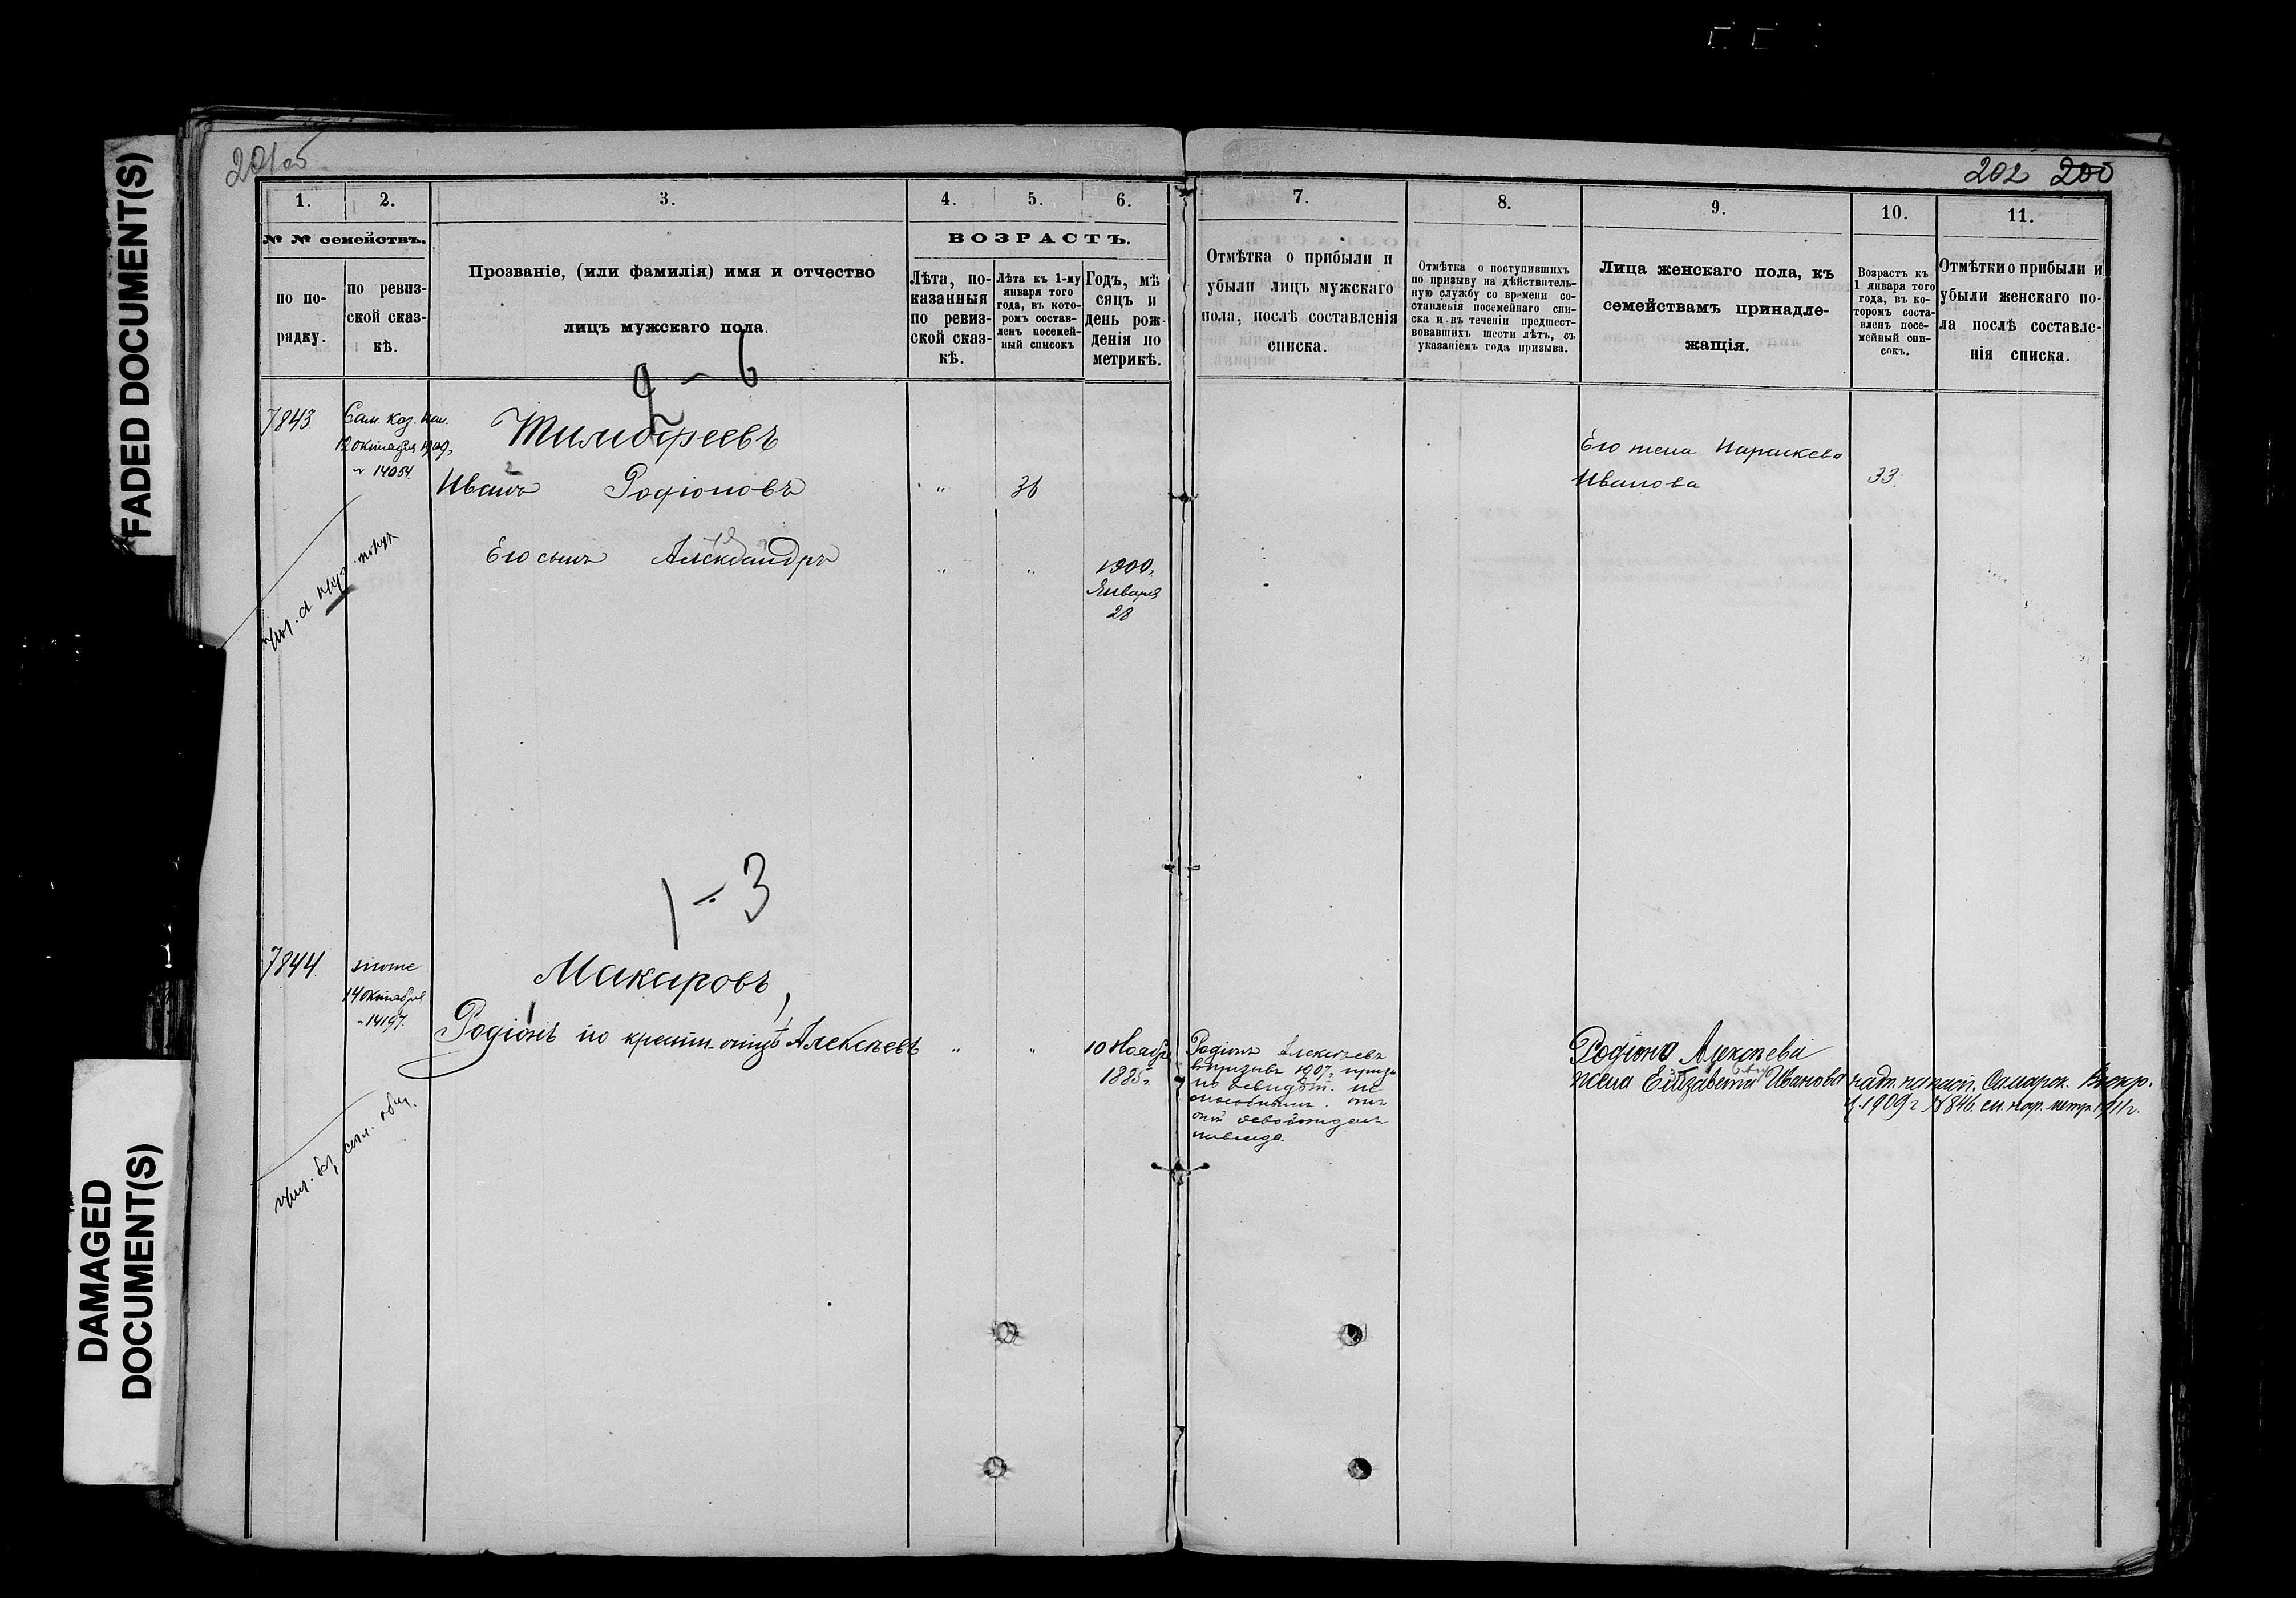 FADED DOCUMENT(S)
DAMAGED
DOCUMENT(S)
201об
202 200
1. 2. 3. 4. 5. 6.
№ № семействъ.
по по-
рядку.
по ревиз-
ской сказ-
кѣ.
Прозваніе, (или фамилія) имя и отчество
лицъ мужскаго пола.
ВОЗРАСТЪ.
Лѣта, по-
казанныя
по ревиз-
ской сказ-
кѣ.
Лѣта къ 1-му
января того
года, въ кото-
ромъ состав-
ленъ посемей-
ный списокъ
Годъ, мѣ
сяцъ и
день рож-
денія по
метрикѣ.
7. 8. 9. 10. 11.
Отмѣтка о прибыли и
убыли лицъ мужскаго
пола, послѣ составленія
списка.
Отмѣтка о поступившихъ
по призыву на дѣйствитель-
ную службу со времени со-
ставленія посемейнаго спи-
ска и въ теченіи предшест-
вовавшихъ шести лѣтъ, съ
указаніемъ года призыва.
Лица женскаго пола, къ
семействамъ принадле-
жащія.
Возрастъ къ
1 января того
года, въ ко-
торомъ соста-
вленъ посе-
мейный спи-
сокъ.
Отмѣтки о прибыли и
убыли женскаго по-
ла послѣ составле-
нія списка.
2 – 6
7843
Сам. каз. пал.
12 октября 1909,
14054.
Тимофеевъ
Иванъ Родіоновъ
" 36
Его жена Параскева
Иванова 33.
Его сынъ Александръ
" "
1900,
Января
28
1 – 3
7844.
тоже
14 октября
14197.
Макаровъ,
Родіонъ по крестн. отцѣ Алексѣевъ
" "
10 Ноября
1885г.
Родіонъ Алексѣевъ
въ призывъ 1907г.
по освидѣт. не
способнымъ.
освобожденъ
навсегда.
Родіона Алексѣева
жена Елизавета Иванова
Самарск.
1909 г. № 846. 1911г.